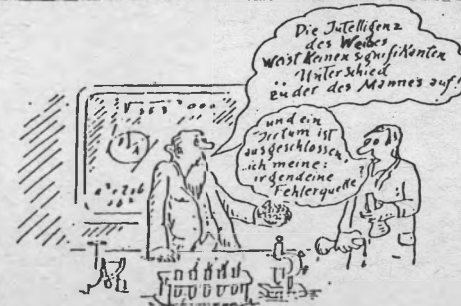 Die Intelligenz
des Weibes
weist keinen signifikanten
Unterschied
zu der des Mannes auf!
und ein
Irrtum ist
ausgeschlossen,
ich meine:
irgendeine
Fehlerquelle?